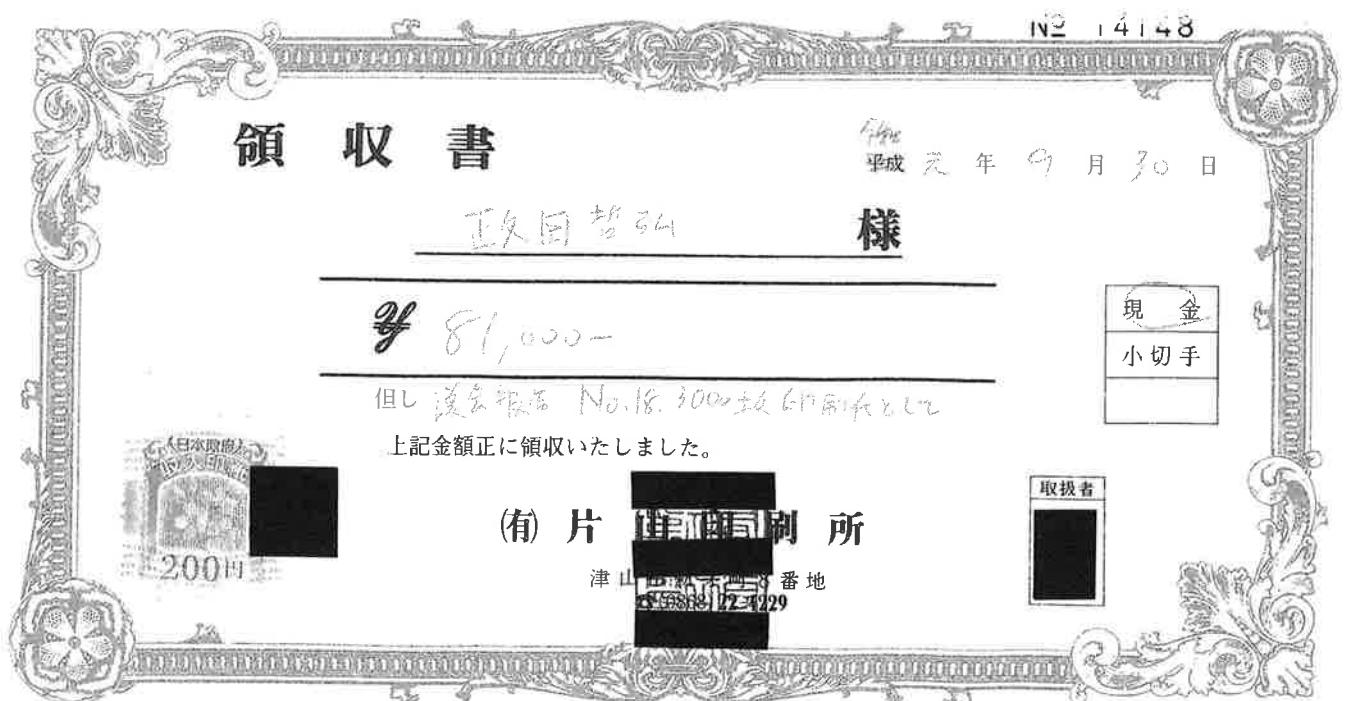 № 14148
領収書
令和
平成 元年 9月 30日
政田哲弘 様
¥ 81,000-
現金
小切手
但し 議会報告 No.18. 3000枚 印刷代として
上記金額正に領収いたしました。
日本政府
収入印紙
200円
取扱者
(有) 片山印刷所
津山 8番地
22-4229